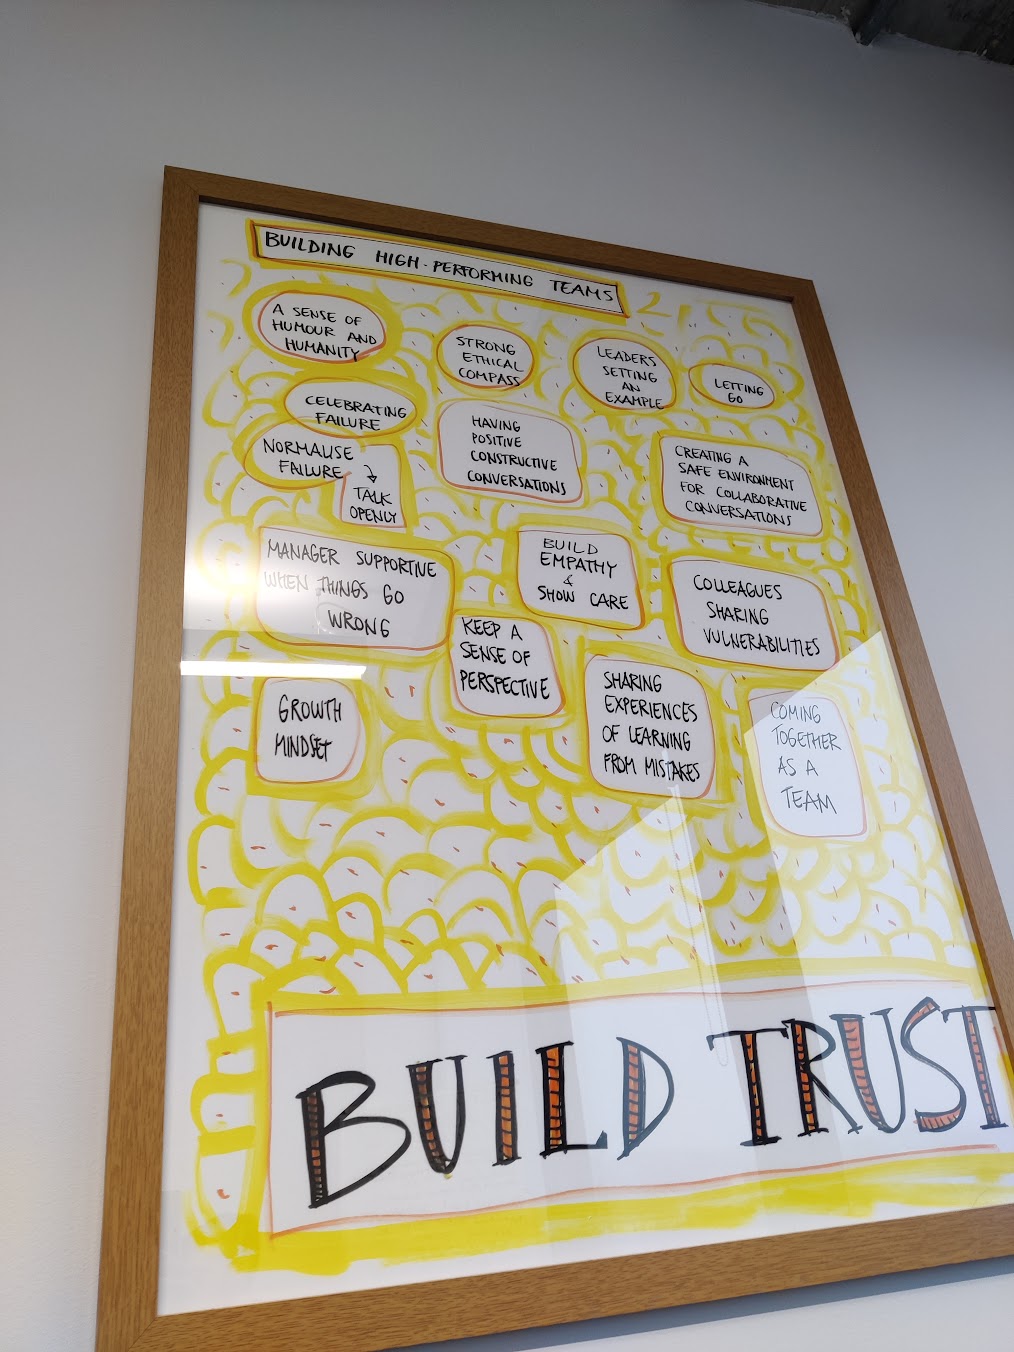 BUILDING HIGH-PERFORMING TEAMS
A SENSE OF
HUMOUR AND
HUMANITY
STRONG
ETHICAL
COMPASS
LEADERS
SETTING
AN
EXAMPLE
LETTING
GO
CELEBRATING
FAILURE
HAVING
POSITIVE
CONSTRUCTIVE
CONVERSATIONS
CREATING A
SAFE ENVIRONMENT
FOR COLLABORATIVE
CONVERSATIONS
NORMALISE
FAILURE
TALK
OPENLY
MANAGER SUPPORTIVE
WHEN THINGS GO
WRONG
BUILD
EMPATHY
&
SHOW CARE
COLLEAGUES
SHARING
VULNERABILITIES
KEEP A
SENSE OF
PERSPECTIVE
GROWTH
MINDSET
SHARING
EXPERIENCES
OF LEARNING
FROM MISTAKES
COMING
TOGETHER
AS A
TEAM
BUILD TRUST